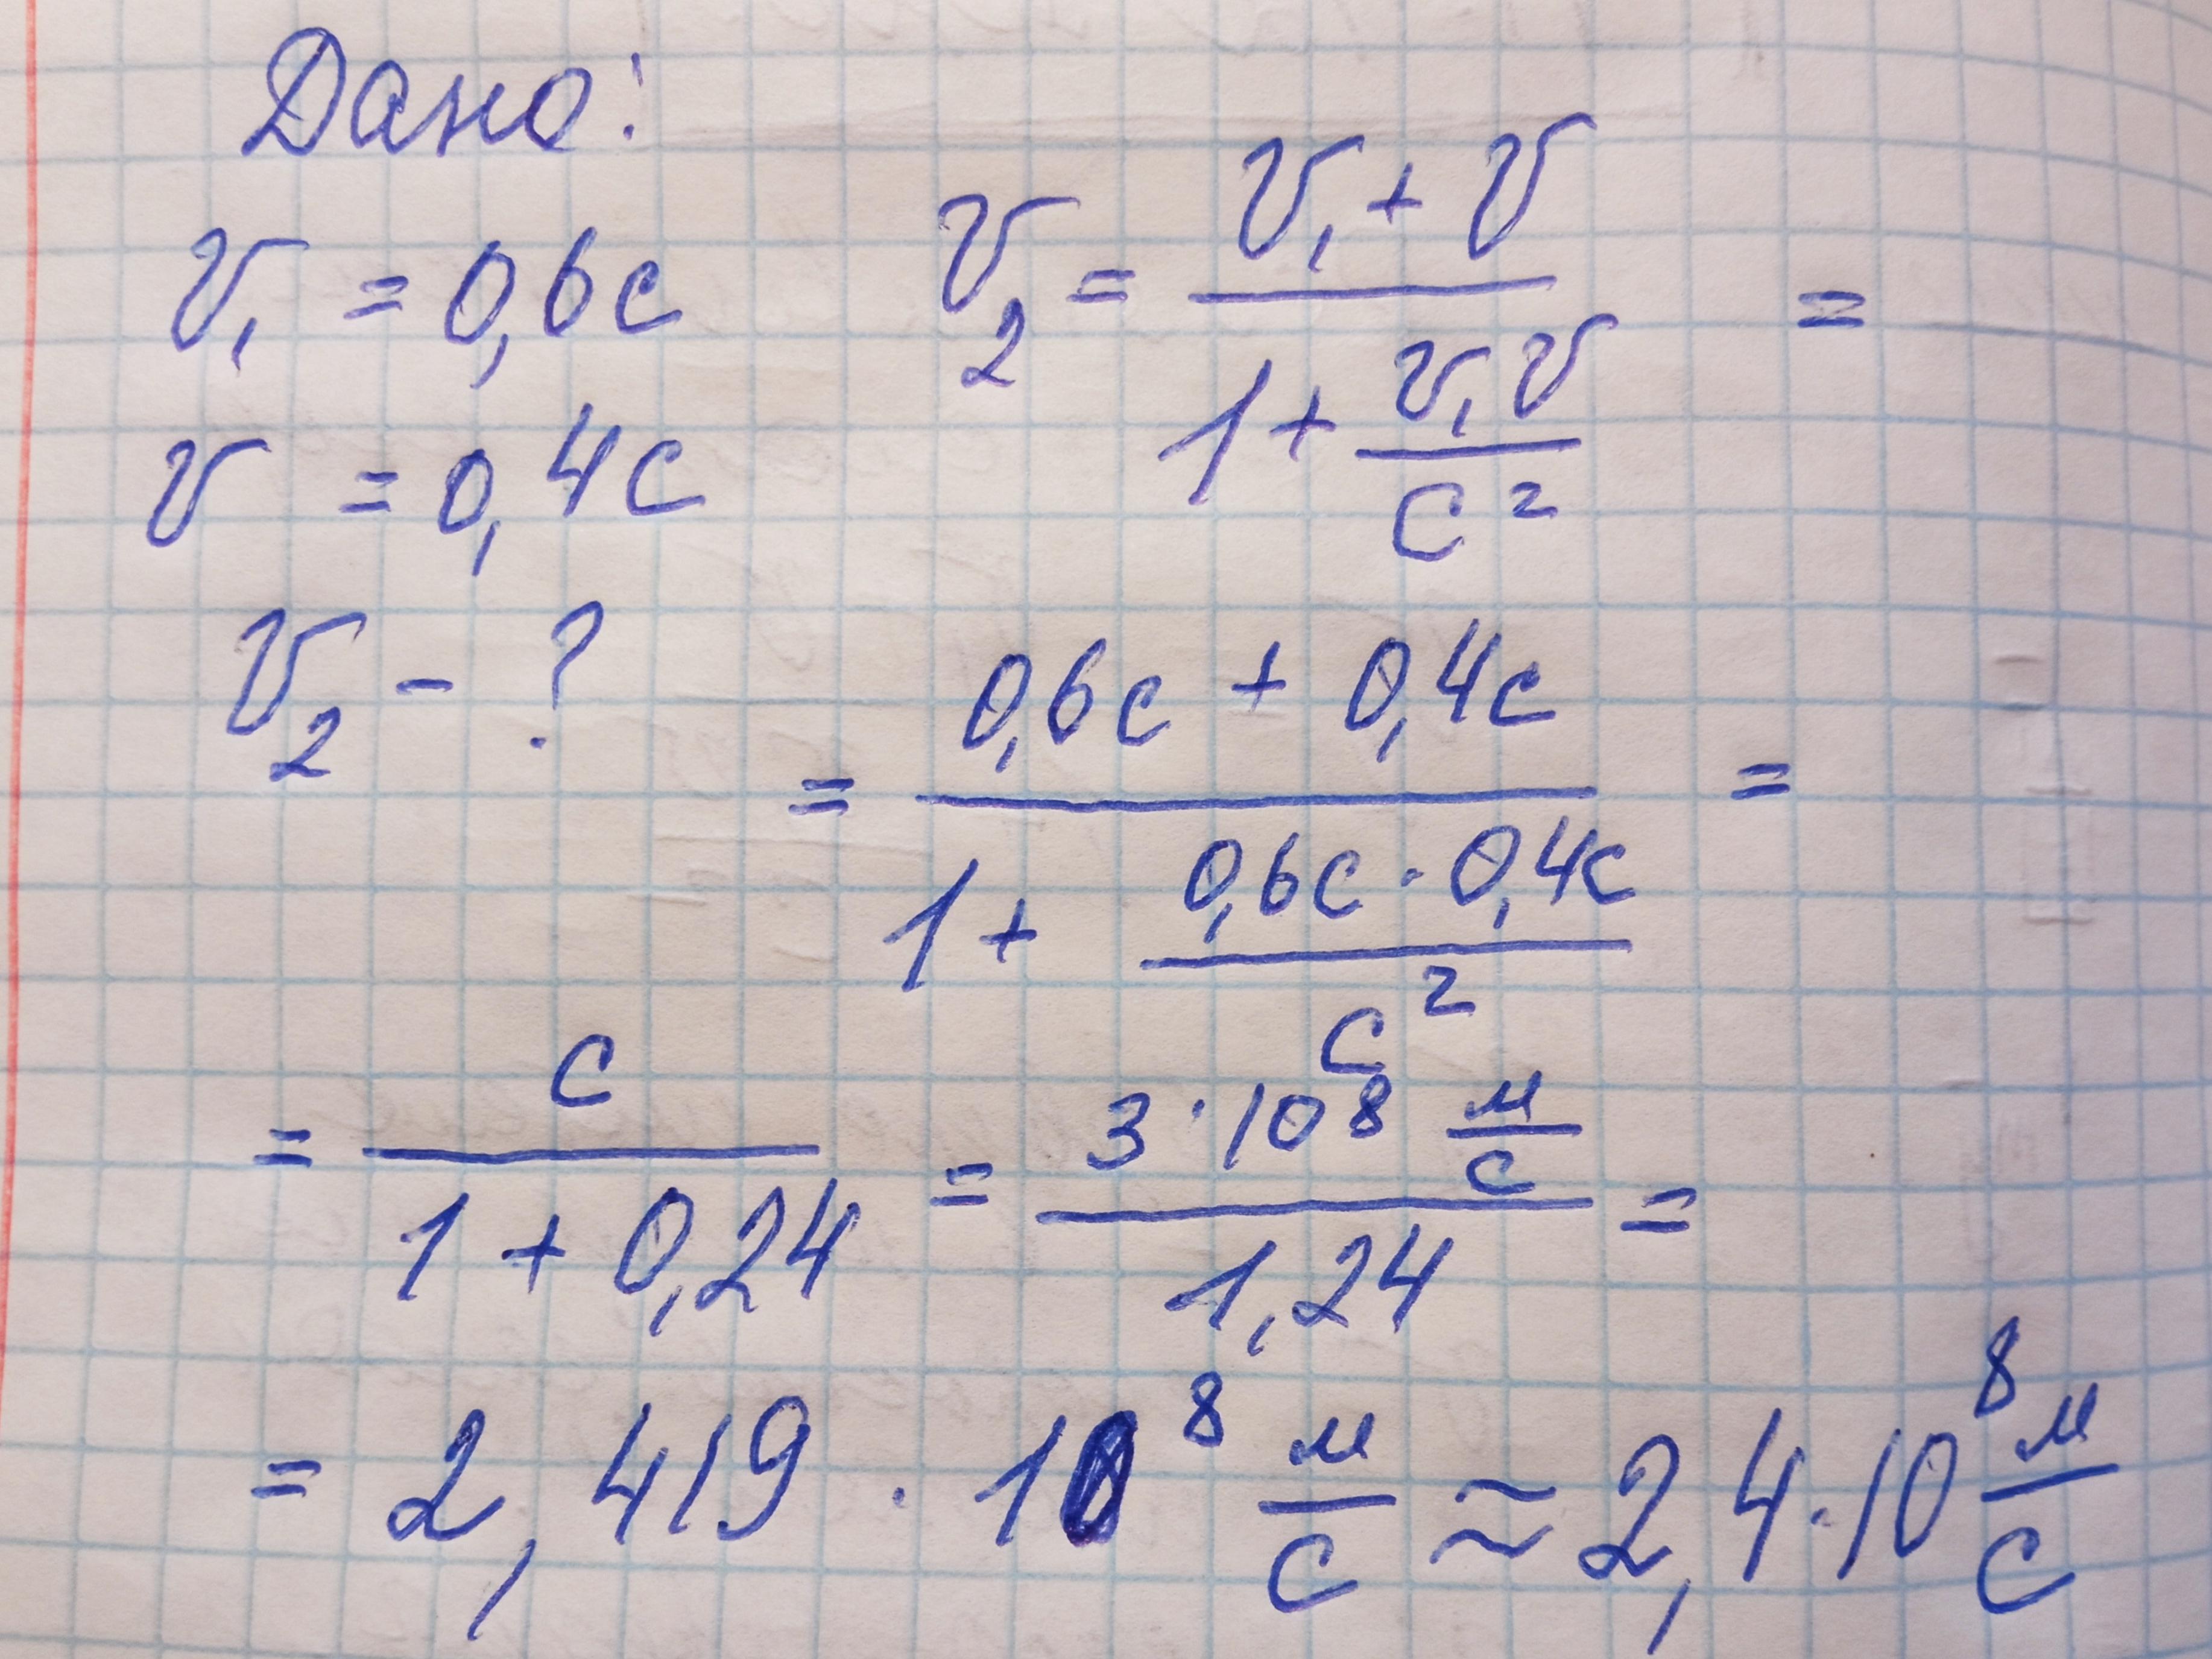 Дано:
v₁ = 0,6c
v = 0,4c
v₂ - ?
v₂ = (v₁ + v) / (1 + v₁v / c²) =
= (0,6c + 0,4c) / (1 + 0,6c · 0,4c / c²) =
= c / (1 + 0,24) = 3 · 10⁸ м/с / 1,24 =
= 2,419 · 10⁸ м/с ≈ 2,4 · 10⁸ м/с